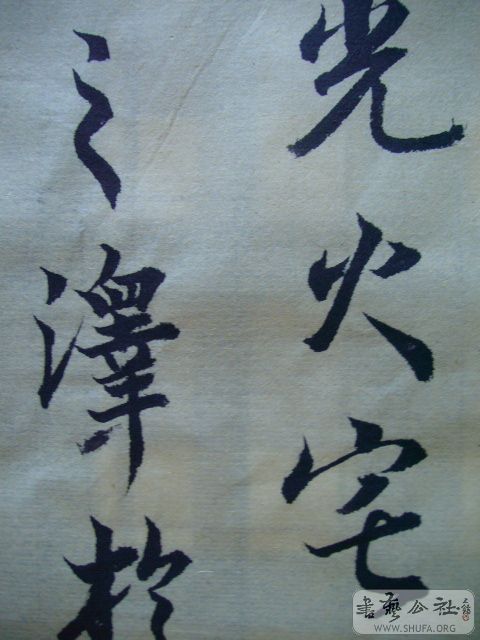 光火宅
之澤於
書藝公社
WWW.SHUFA.ORG